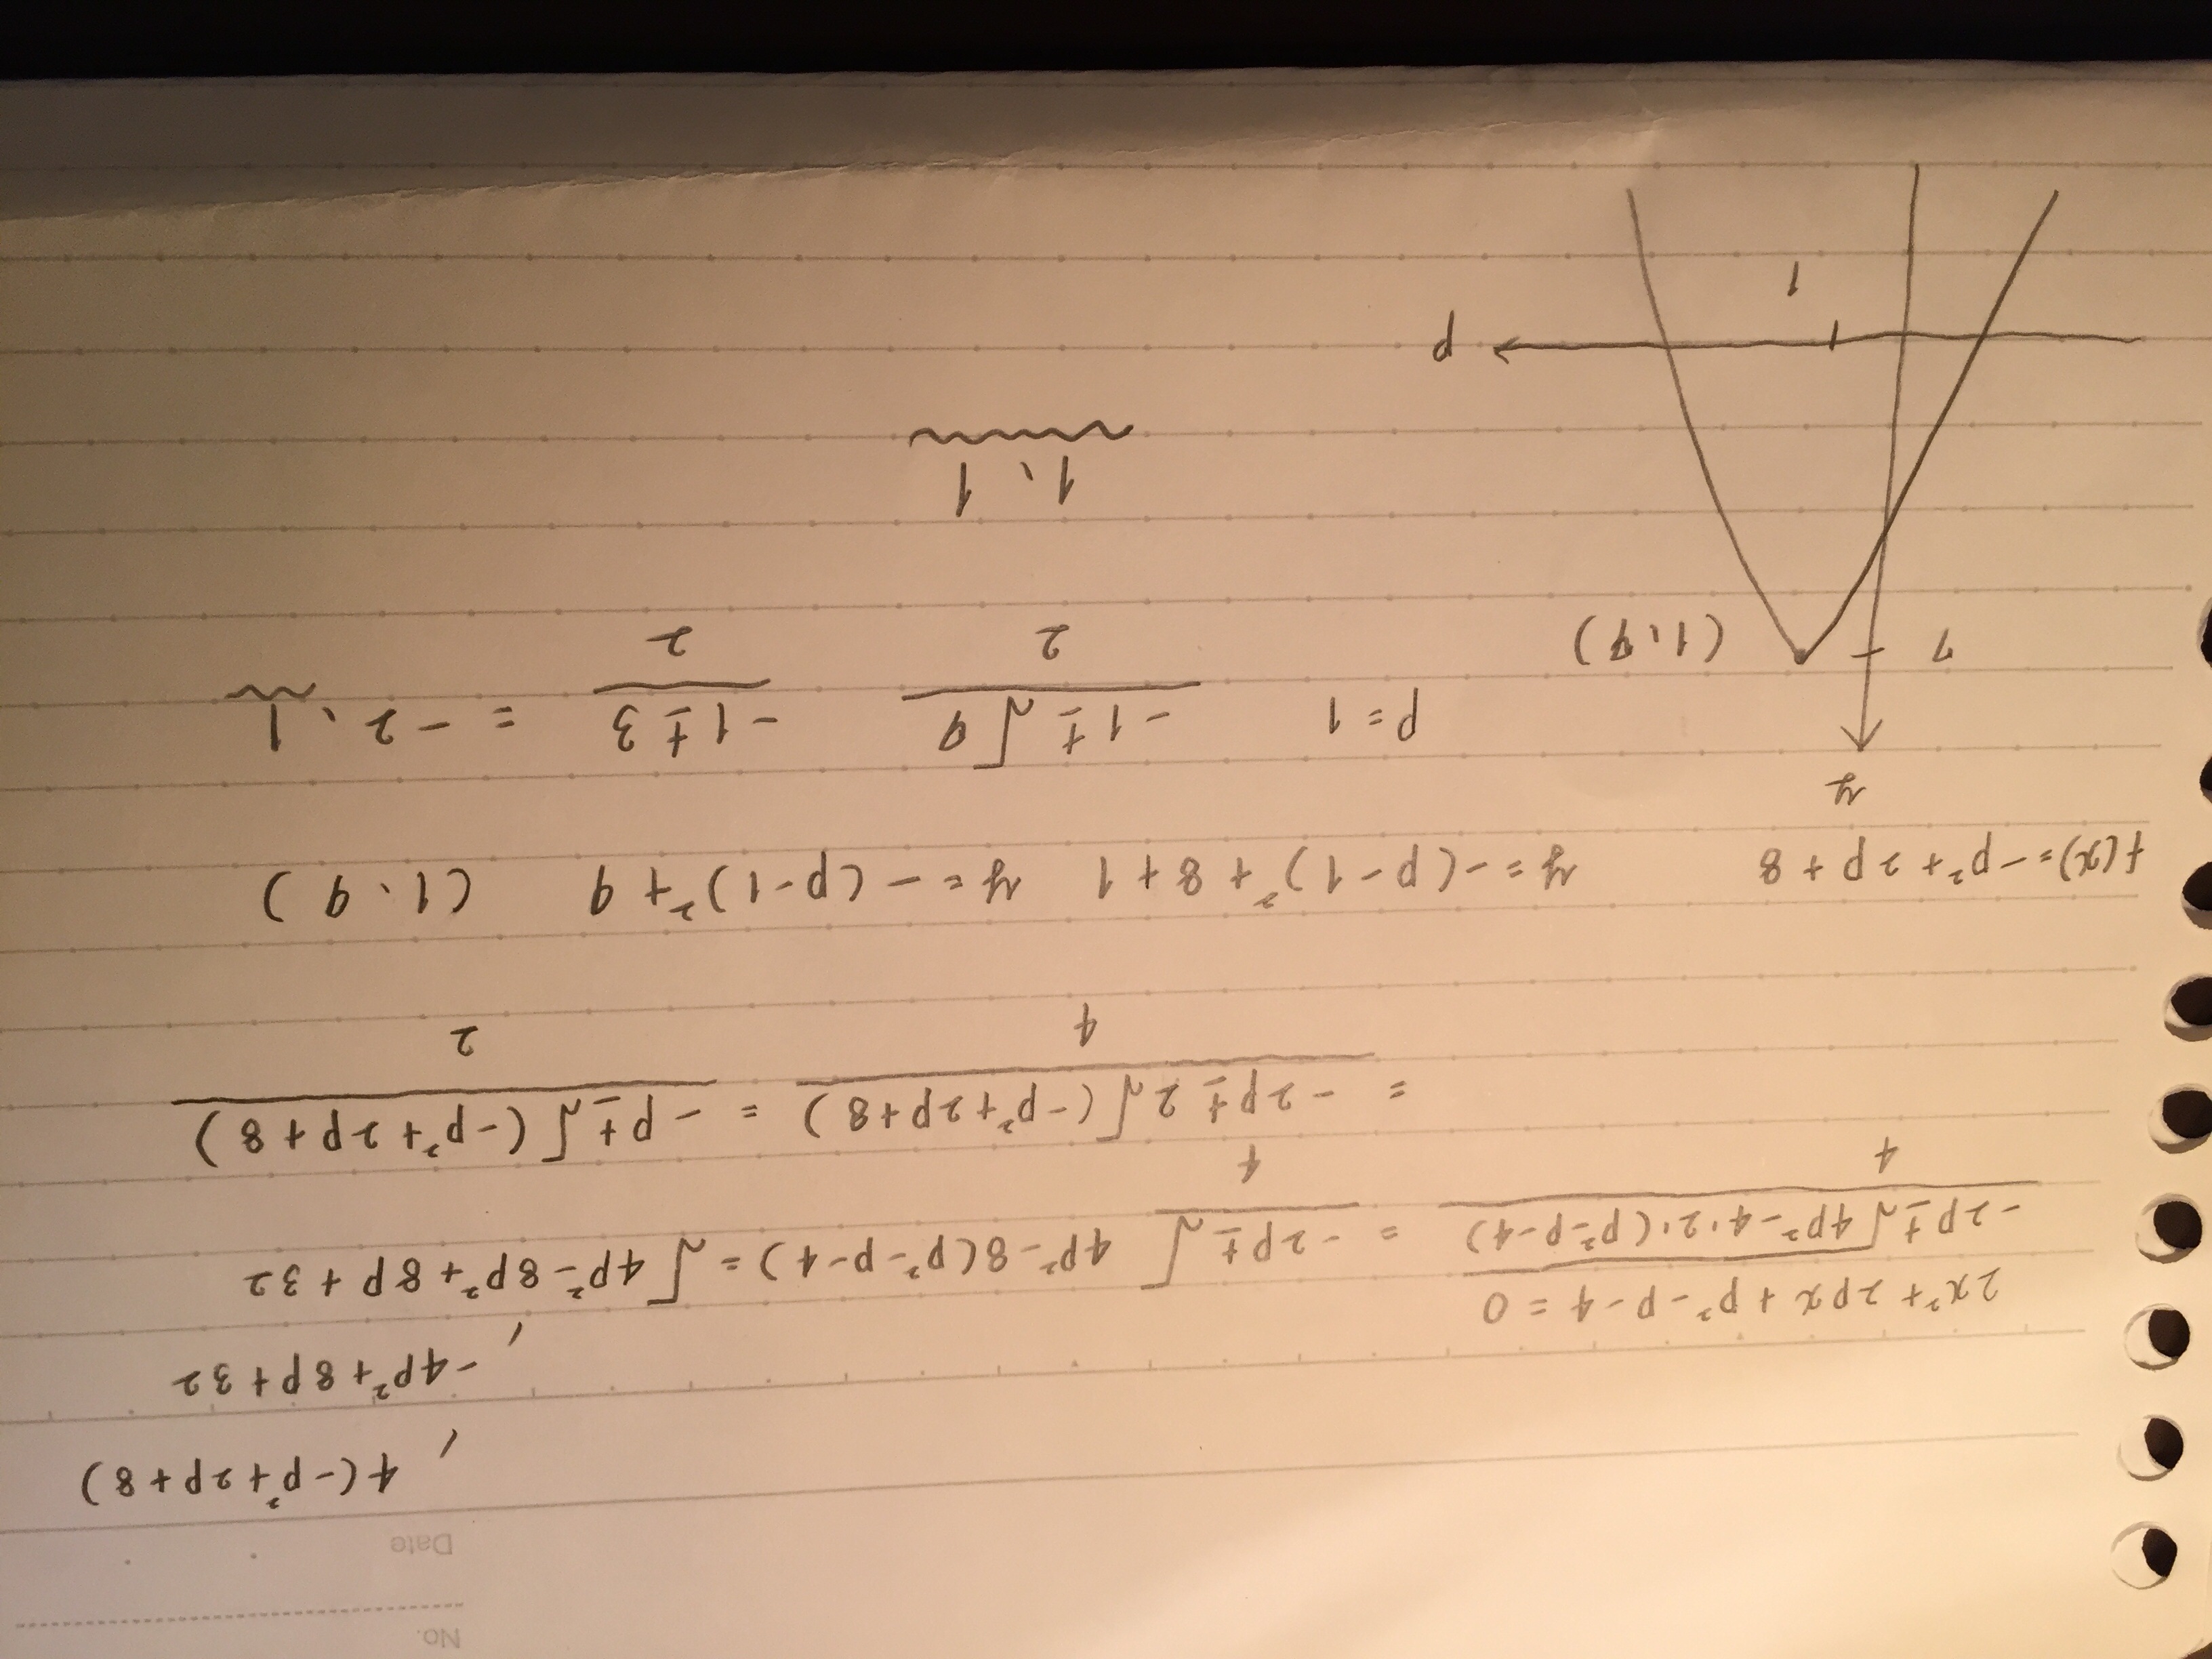 No.
Date
4(-p²+2p+8)
-4p²+8p+32
2x²+2px+p²-p-4=0
-2p±√4p²-4・2・(p²-p-4) / 4 = -2p±√4p²-8(p²-p-4) / 4 = √4p²-8p²+8p+32
= -2p±2√(-p²+2p+8) / 4 = -p±√(-p²+2p+8) / 2
f(x)=-p²+2p+8 y=-(p-1)²+8+1 y=-(p-1)²+9 (1、9)
y
p=1 -1±√9 / 2 -1±3 / 2 = -2、1
(1、9)
1、1
p
1